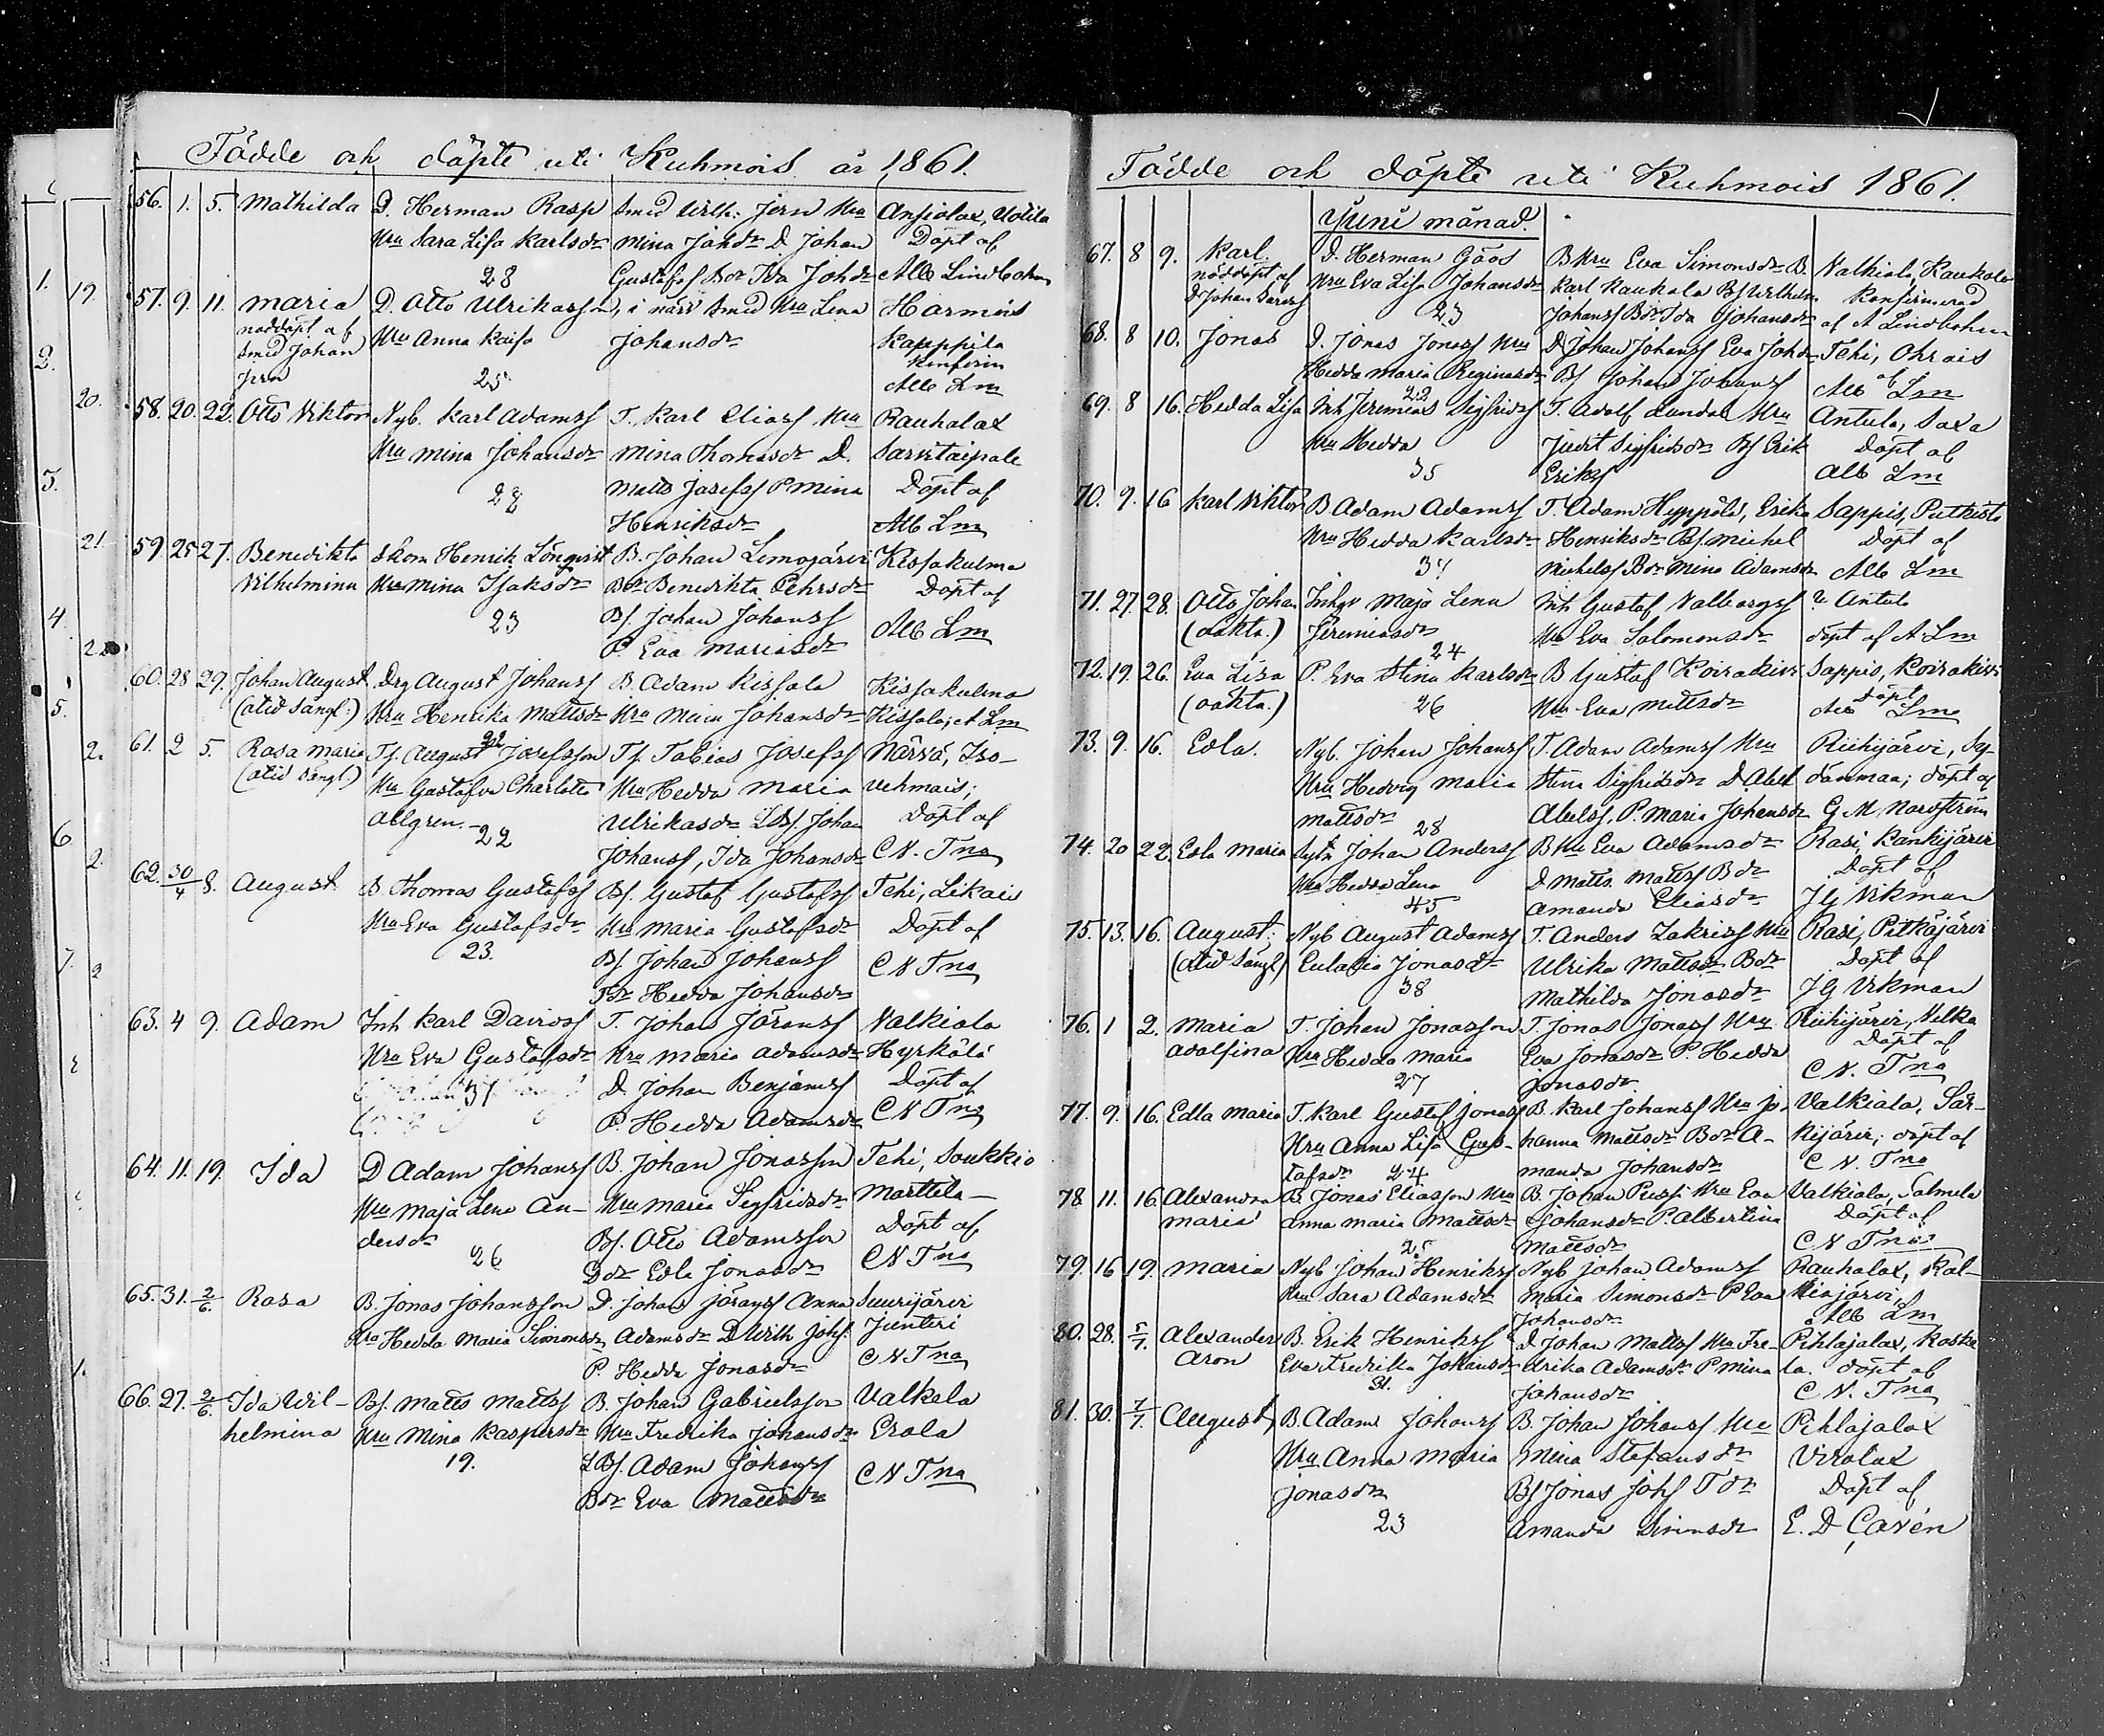 Födde och döpte uti Kuhmois år 1861.
56. 1. 5. Mathilda D. Herman Rasp Smed Wilh: Jern Hru
Hru Sara Lisa Karlsdr Mina Johdr D Johan Döpt af
28 Gustafss Bdr Ida Johdr Alb Lindbohm
57. 9. 11. Maria D. Otto Ulrikasson, i närv Smed Hru Lena Harmois
nöddöpt af Hru Anna Kaisa Johansdr Kauppila
Smed Johan Konfirm
Jern 25 Alb Lm
58. 20. 22. Otto Viktor Nyb. Karl Adamss T. Karl Eliass Hru Rauhalax
Hru Mina Johansdr Mina Thomasdr D. Sarvitaipale
28 Matts Josefss P Mina Döpt af
Henriksdr Alb Lm
59. 25 27. Benedikta Skom Henrik Lönqvist B. Johan Limojärvi Kissakulma
Vilhelmina Hru Mina Isaksdr Bdr Benedikta Pehrsdr Döpt af
23 Bs. Johan Johanss Alb Lm
P. Eva Mariasdr
60. 28 29. Johan August Drg August Johanss B. Adam Kissala Kissakulma
Hru Henrika Mattsdr Hru Maria Johansdr Kissala; A Lm
61. 2 5. Rosa Maria Ts. August Josefsson Ts. Tobias Josefss Närvä, Iso-
Hru Gustafva Charlotta Hru Hedda Maria vehmais;
Allgren. 22 Ulrikasdr LBs. Johan Döpt af
Johanss, Ida Johansdr C N. Tna
62. 30/4 8. August B Thomas Gustafss Bs. Gustaf Gustafss Tehi, Likais
Hru Eva Gustafsdr Hru Maria Gustafsdr Döpt af
23. Bs. Johan Johanss C N Tna
Hedda Johansdr
63. 4 9. Adam Inh Karl Davidss T. Johan Göranss Valkiala
Hru Eva Gustafsdr Hru Maria Adamsdr Hyrkölä
37 D. Johan Benjamss Döpt af
P. Hedda Adamsdr C N Tna
64. 11. 19. Ida D Adam Johanss B. Johan Jonasson Tehi, Soukkio
Hru Maja Lena An- Hru Maria Sigfridsdr Marttila
dersdr Bs. Otto Adamsson Döpt af
26 Bdr Edla Jonasdr C N Tna
65. 31. 2/6. Rosa B. Jonas Johansson D. Johan Göranss Anna Suurijärvi
Hru Hedda Maria Simonsdr Adamsdr D Wilh Johs. Junttri
P. Hedda Jonasdr C N Tna
66. 27. 2/6. Ida Wil- Bs. Matts Mattss B. Johan Gabrielsson Valkela
helmina Hru Mina Kaspersdr Hru Fredrika Johansdr Erola
19. LBs. Adam Johanss C N Tna
Bdr Eva Mattsdr
Födde och döpte uti Kuhmois 1861.
Juni månad.
67. 8 9. Karl. D. Herman Göös B Hru Eva Simonsdr B. Valkiala, Kaukola
nöddöpt af Hru Eva Lisa Johansdr Karl Kaukola Bs Wilhelm Konfirmerad
D Johan 23 Johanss Bdr Ida Johansdr af A Lindbohm
68. 8 10. Jonas D. Jonas Jonass Hru D Johan Johanss Eva Johdr Tehi, Ohrais
Hedda Maria Reginasdr Bs Johan Johanss af
22 Alb Lm
69. 8 16. Hedda Lisa Inh Jeremias Sigfridss T. Adolf Lundal Hru Antula, Saxa
Hru Hedda Judit Sigfridsdr Bs Erik Döpt af
35 Erikss Alb Lm
70. 9. 16 Karl Viktor B Adam Adamss T. Adam Hyppölä, Erika Sappis, Putkisto
Hru Hedda Karlsdr Henriksdr Bs. Michel Döpt af
37 Michelss Bdr Mina Adamsdr Alb Lm
71. 27. 28. Otto Johan Inhqv Maja Lena Inh Gustaf Valborgss Antula
(oäkta.) Jeremiasdr Hru Eva Salomonsdr döpt af A Lm
24
72. 19. 26. Eva Lisa P. Eva Stina Karlsdr B Gustaf Koirakivi Sappis, Koirakivi
(oäkta.) 26 Hru Eva Mattsdr Döpt
Alb Lm
73. 9. 16. Edla. Nyb. Johan Johanss T. Adam Adamss Hru Riihijärvi, Sy-
Hru Hedvig Maria Stina Sigfridsdr D. Abel dänmaa; döpt af
Mattsdr 28 Abelss. P. Maria Johansdr G. M Nordström
74. 20 22. Edla Maria Johan Anderss B Hru Eva Adamsdr Rasi, Kankijärvi
Hru Hedda Lena D Matts Mattss Bdr Döpt af
45 Amanda Eliasdr J G Vikman
75. 13. 16. August; Nyb August Adamss T. Anders Zakriss Hru Rasi, Pitkäjärvi
Eulalia Jonasdr Ulrika Mattsdr Bdr Döpt af
38 Mathilda Jonasdr J G Vikman
76. 1 2. Maria T. Johan Jonasson T. Jonas Jonass Hru Riihijärvi, Vilka
Adolfina Hru Hedda Maria Eva Jonasdr P. Hedda Döpt af
27 Jonasdr C N. Tna
77. 9. 16. Edla Maria T. Karl Gustaf Jonass B. Karl Johanss Hru Jo- Valkiala, Sär-
Hru Anna Lisa Gus- hanna Mattsdr Bdr A- kijärvi; döpt af
tafsdr 24 manda Johansdr C N. Tna
78 11. 16. Alexandra B. Jonas Eliasson Hru B. Johan Pussi Hru Eva Valkiala, Salmela
Maria Anna Maria Mattsdr Johansdr P. Albertina Döpt af
25 Mattsdr C N Tna
79. 16 19. Maria Nyb Johan Henrikss Nyb Johan Adamss Rauhalax, Kal-
Hru Sara Adamsdr Maria Simonsdr P Eva liojärvi,
Johansdr Alb Lm
80. 28. 5/7. Alexander B. Erik Henrikss D Johan Mattss Hru Fre- Pihlajalax, Koske
Aron Eva Fredrika Johansdr drika Adamsdr P Mina la. döpt af
31. Johansdr C N. Tna
81. 30. 7/7. August B. Adam Johanss B. Johan Johanss Hru Pihlajalax
Hru Anna Maria Mina Stefansdr Virolax
Jonasdr Bs Jonas Johs Tdr Döpt af
23 Amanda Simonsdr E. D Cavén